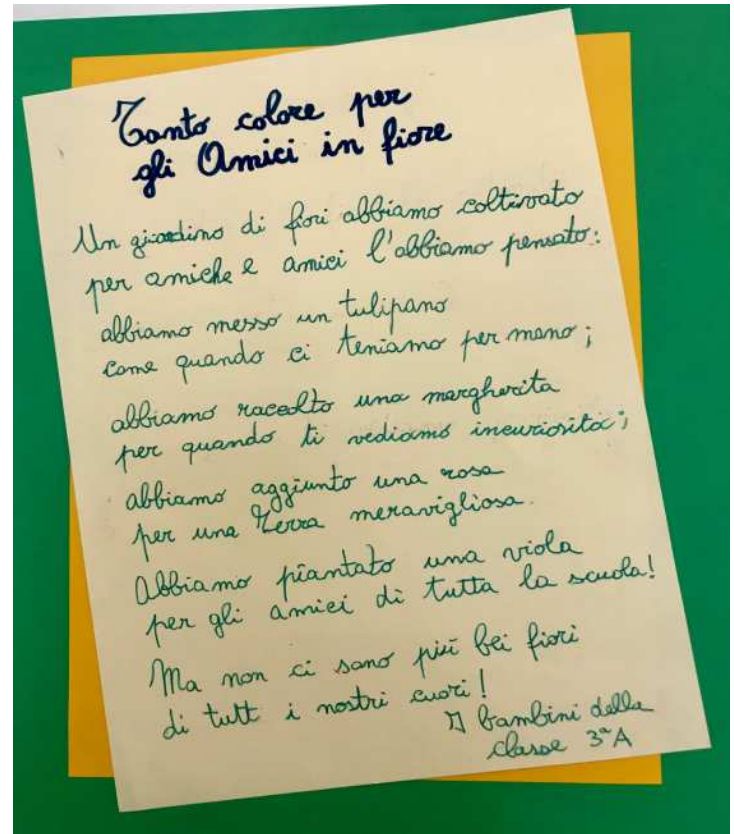 Tanto colore per
gli Amici in fiore
Un giardino di fiori abbiamo coltivato
per amiche e amici l'abbiamo pensato:
abbiamo messo un tulipano
come quando ci teniamo per mano;
abbiamo raccolto una margherita
per quando ti vediamo incuriosita;
abbiamo aggiunto una rosa
per una Terra meravigliosa.
Abbiamo piantato una viola
per gli amici di tutta la scuola!
Ma non ci sono più bei fiori
di tutt i nostri cuori!
I bambini della
classe 3ªA